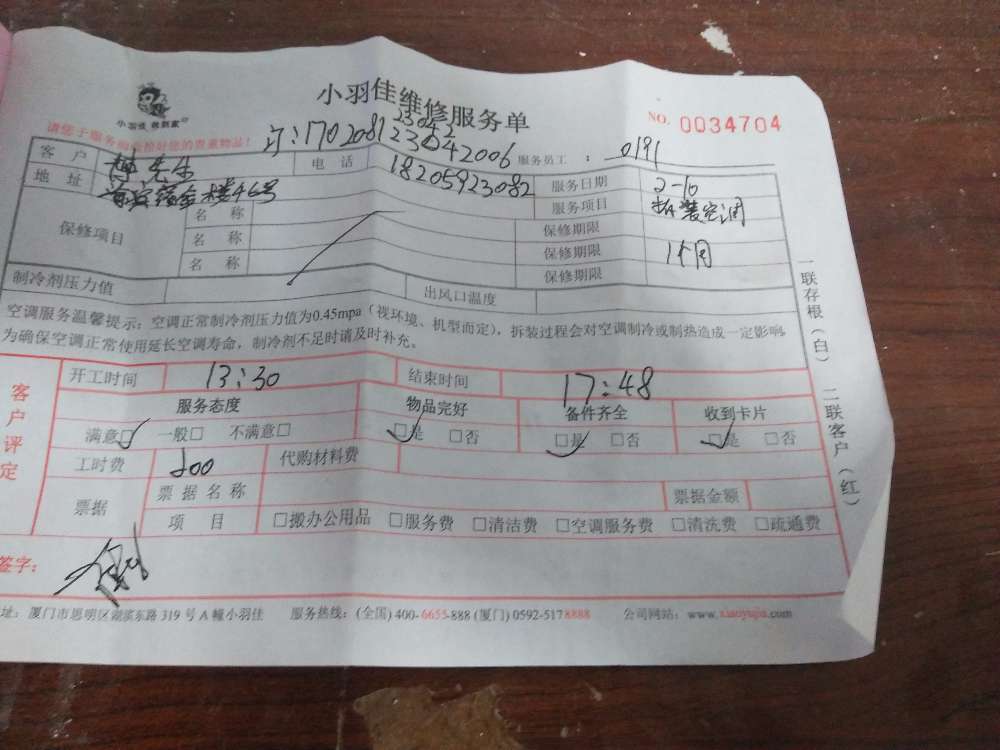 小羽佳维修服务单
小羽佳 做到家
NO. 0034704
请您于服务前查检好您的贵重物品!
服务员工 : 0191
客户 先生 电话 18205923082 服务日期 2-10
地址 46号 服务项目 拆装空调
保修项目 名称 保修期限
名称 保修期限 1个月
名称 保修期限
制冷剂压力值 出风口温度
空调服务温馨提示: 空调正常制冷剂压力值为0.45mpa(视环境、机型而定), 拆装过程会对空调制冷或制热造成一定影响,
为确保空调正常使用延长空调寿命, 制冷剂不足时请及时补充。
客户评定
开工时间 13:30 结束时间 17:48
服务态度 物品完好 备件齐全 收到卡片
满意☑ 一般□ 不满意□ ☑是 □否 ☑是 □否 ☑是 □否
工时费 200 代购材料费
票据 票据名称 票据金额
项目 □搬办公用品 □服务费 □清洁费 □空调服务费 □清洗费 □疏通费
签字:
址: 厦门市思明区湖滨东路319号A幢小羽佳 服务热线: (全国)400-6655-888 (厦门)0592-5178888 公司网站: www.xiaoyujia.com
一联存根(白) 二联客户(红)